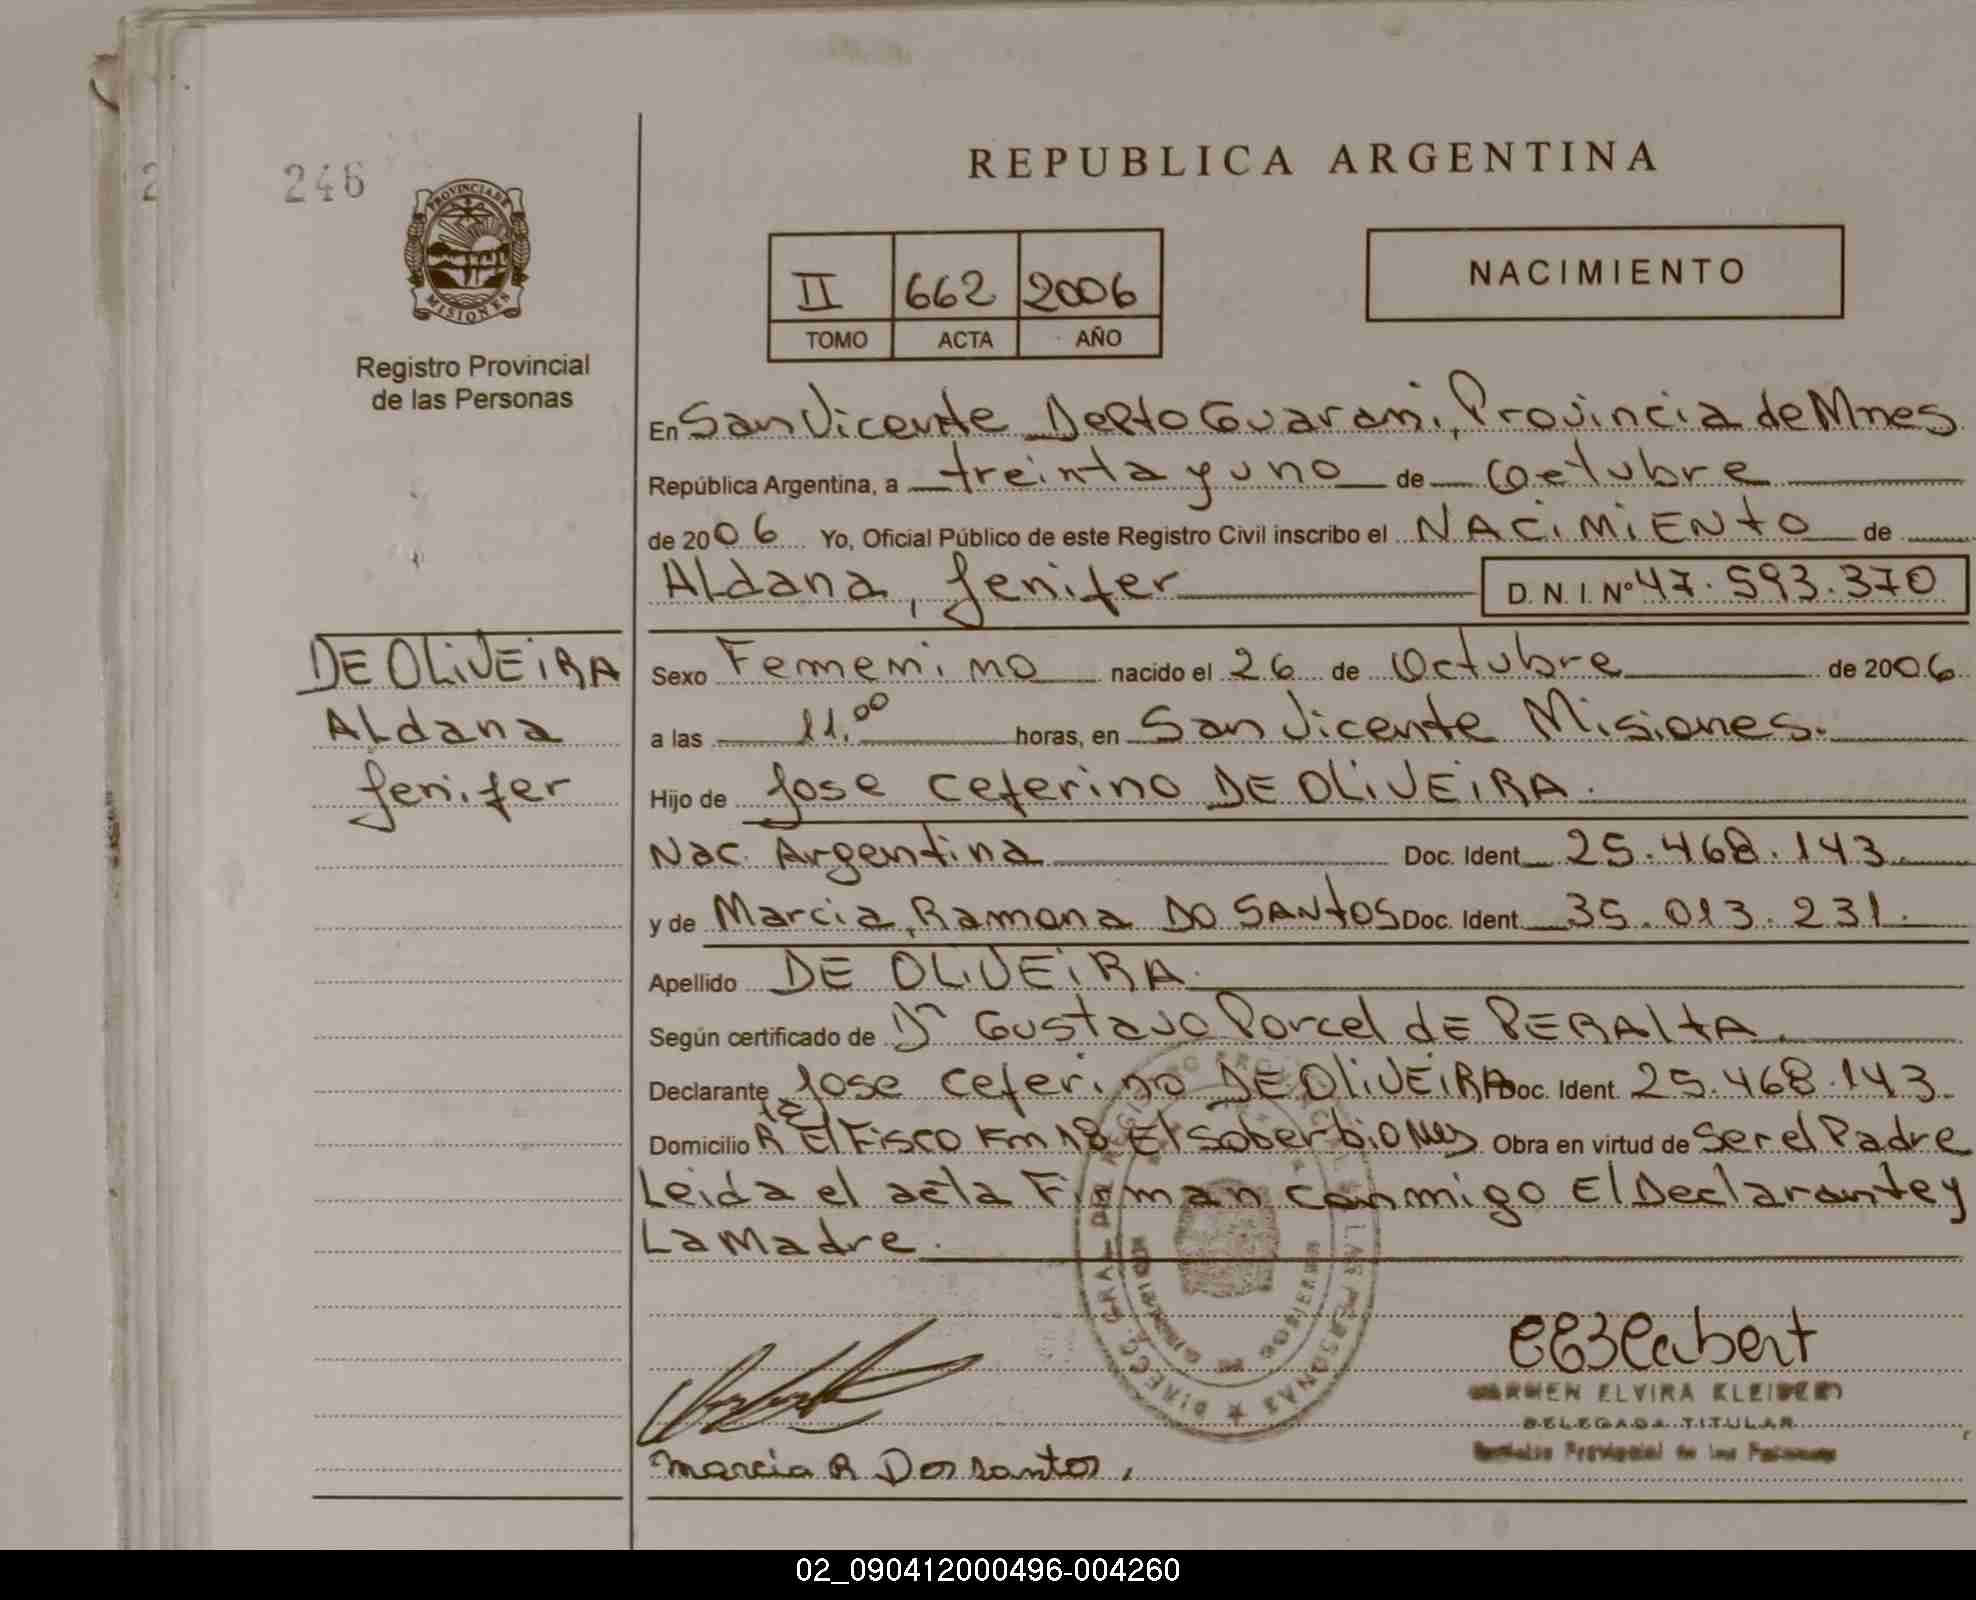 246
PROVINCIA DE
MISIONES
Registro Provincial
de las Personas
REPUBLICA ARGENTINA
II 662 2006
TOMO ACTA AÑO
NACIMIENTO
En San Vicente Depto Guarani, Provincia de Mnes
República Argentina, a treinta y uno de Octubre
de 2006 Yo, Oficial Público de este Registro Civil inscribo el NACIMIENTO de
Aldana, Jenifer D.N.I. Nº 47.593.370
DE OLIVEIRA
Aldana
Jenifer
Sexo Femenino nacido el 26 de Octubre de 2006
a las 11.00 horas, en San Vicente Misiones.
Hijo de Jose Ceferino DE OLIVEIRA.
Nac. Argentina Doc. Ident 25.468.143.
y de Marcia, Ramona DO SANTOS Doc. Ident. 35.013.231.
Apellido DE OLIVEIRA.
Según certificado de Dr Gustavo Porcel dE PERAltA.
Declarante Jose Ceferino DE OLIVEIRA Doc. Ident. 25.468.143.
Domicilio Rta El Fisco Km 18 El Soberbio Mnes Obra en virtud de Ser el Padre
Leida el acta Firman conmigo El Declarante y
La Madre.
DIRECC. GRAL. DEL REGISTRO PROVINCIAL DE LAS PERSONAS
CARMEN ELVIRA KLEIBERT
DELEGADA TITULAR
Registro Provincial de las Personas
Marcia R Dos santos.
02_090412000496-004260